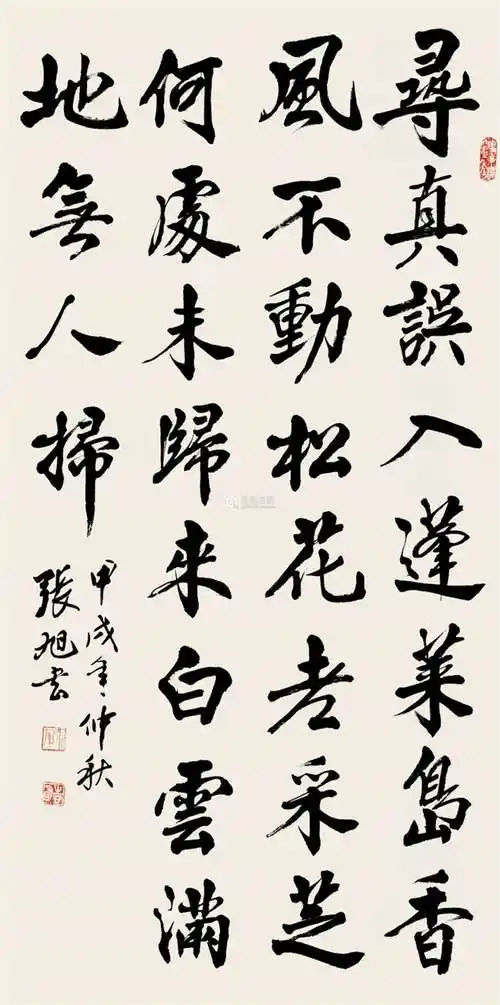 尋真誤入蓬萊島香
風不動松花老采芝
何處未歸來白雲滿
地無人掃
甲戌年仲秋
張旭書